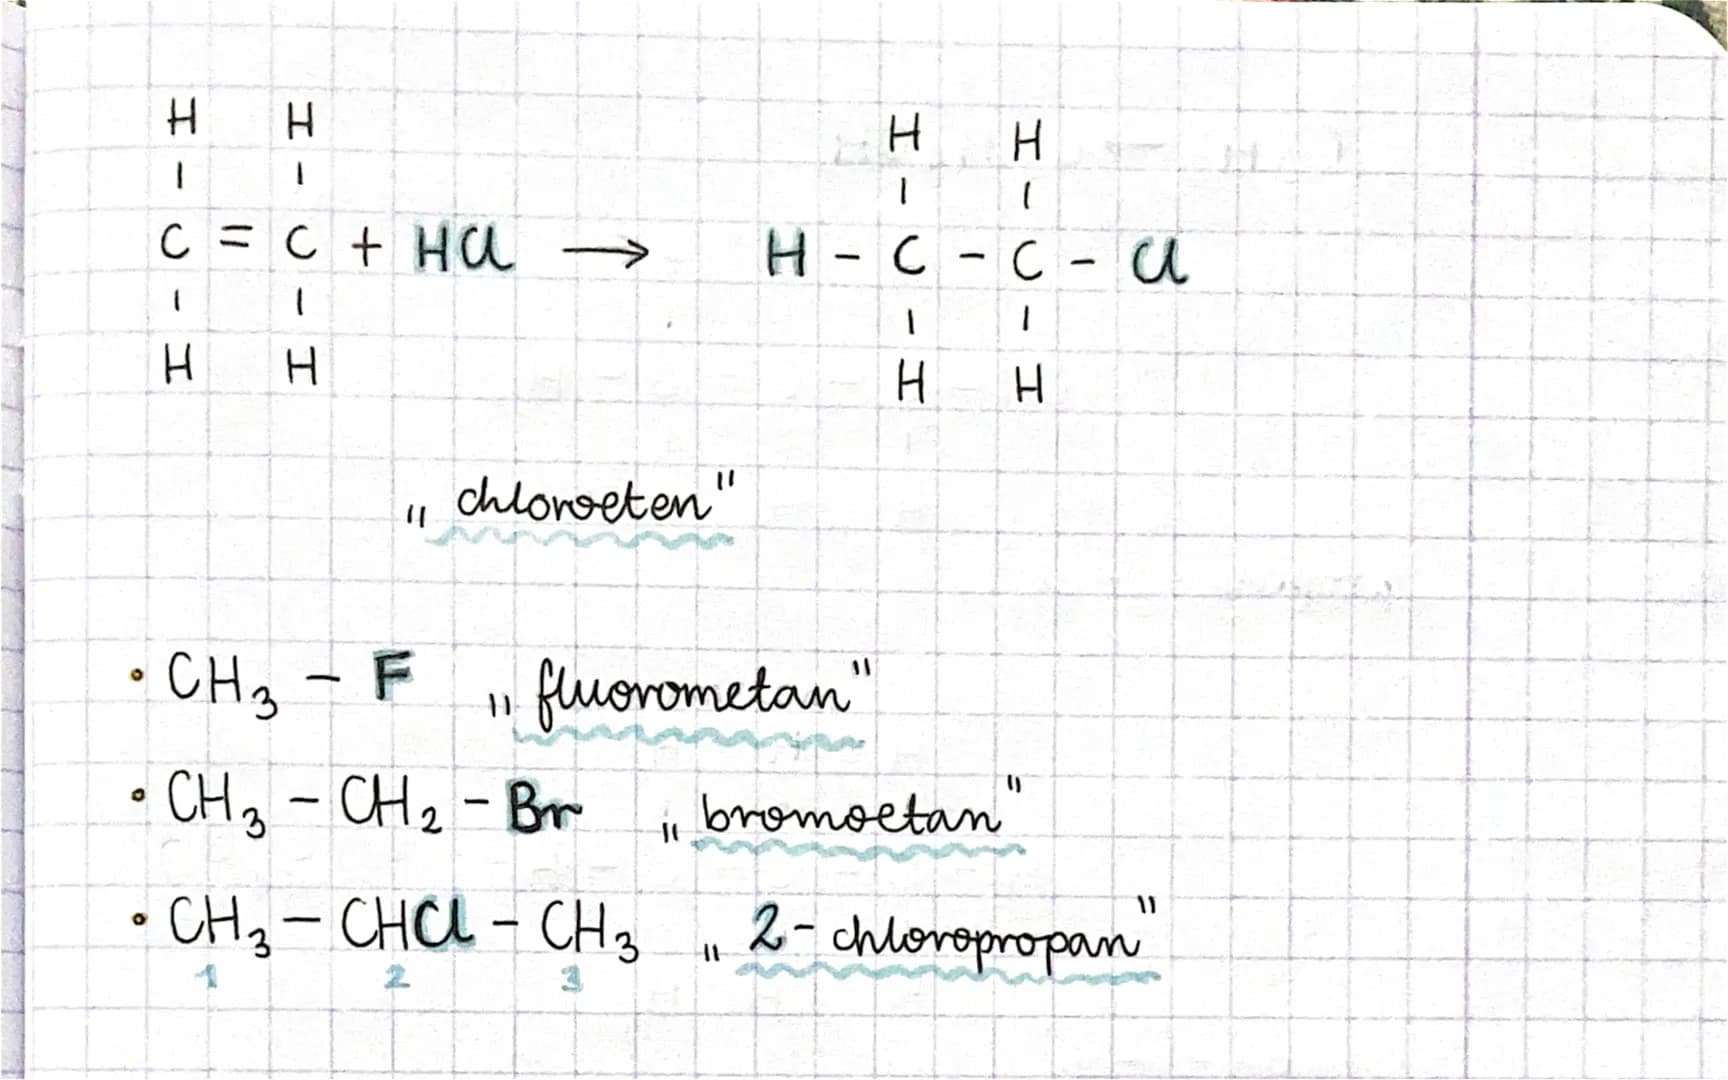 H H H H
| | | |
C = C + HCl → H - C - C - Cl
| | | |
H H H H
„ chloroeten"
• CH₃ - F „ fluorometan"
• CH₃ - CH₂ - Br „ bromoetan"
• CH₃ - CHCl - CH₃ „ 2 - chloropropan"
1 2 3